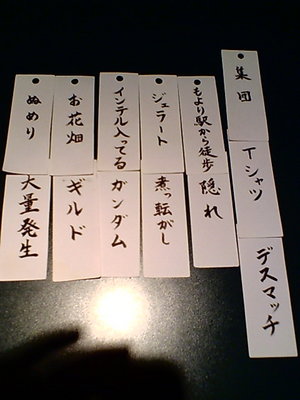 集団
Tシャツ
デスマッチ
もより駅から徒歩
隠れ
ジェラート
煮っ転がし
インテル入ってる
ガンダム
お花畑
ギルド
ぬめり
大量発生